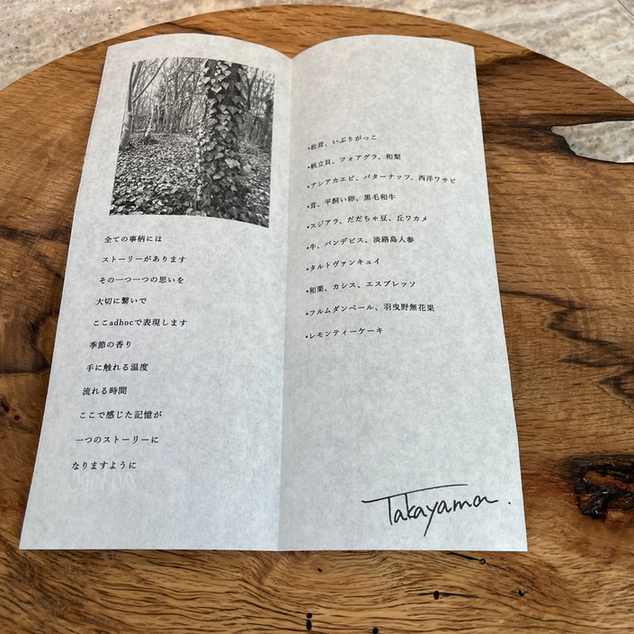 全ての事柄には
ストーリーがあります
その一つ一つの思いを
大切に繋いで
ここadhocで表現します
季節の香り
手に触れる温度
流れる時間
ここで感じた記憶が
一つのストーリーに
なりますように
•松茸、いぶりがっこ
•帆立貝、フォアグラ、和梨
•アシアカエビ、バターナッツ、西洋ワサビ
•茸、平飼い卵、黒毛和牛
•スジアラ、だだちゃ豆、丘ワカメ
•牛、パンデピス、淡路島人参
•タルトヴァンキュイ
•和栗、カシス、エスプレッソ
•フルムダンベール、羽曳野無花果
•レモンティーケーキ
Takayama.